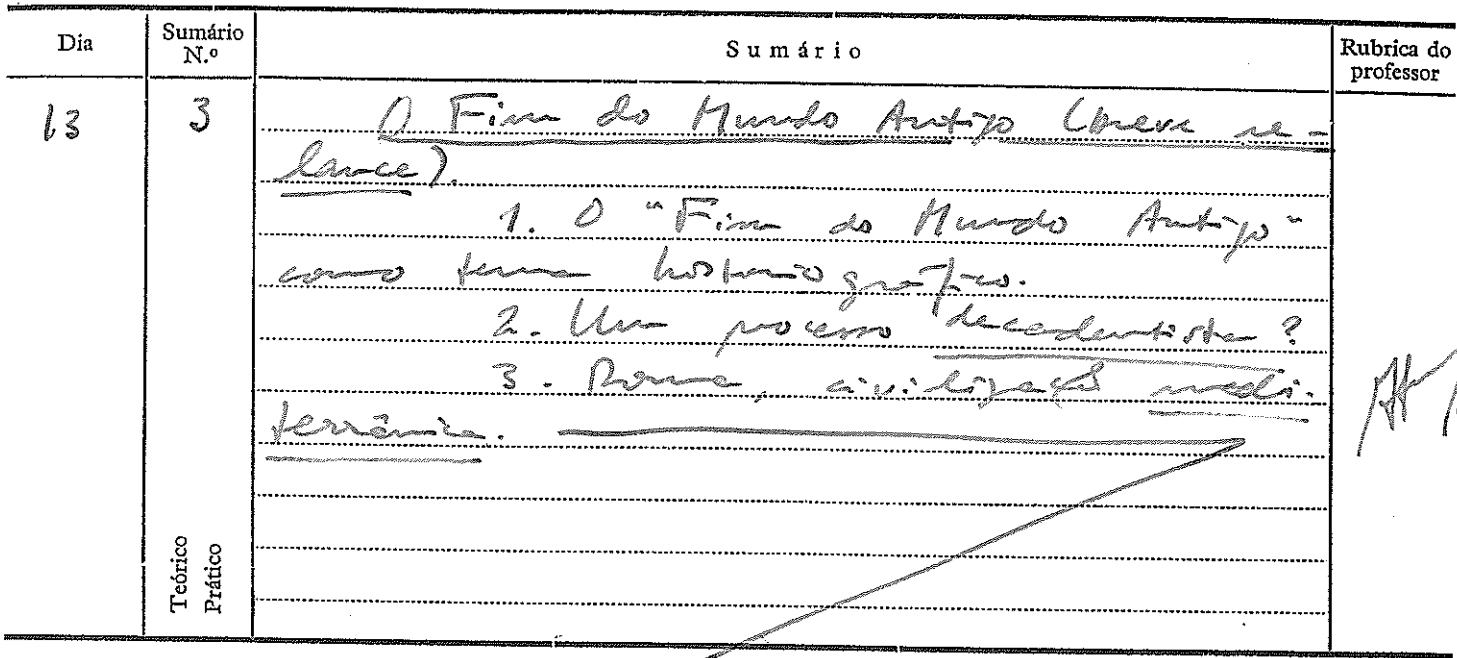 Dia
Sumário N.º
Sumário
Rubrica do professor
13
3
O Fim do Mundo Antigo (breve re-
lance).
1. O "Fim do Mundo Antigo"
como tema historiográfico.
2. Um processo decadentista?
3. Roma, civilização medi-
terrânica.
Teórico
Prático